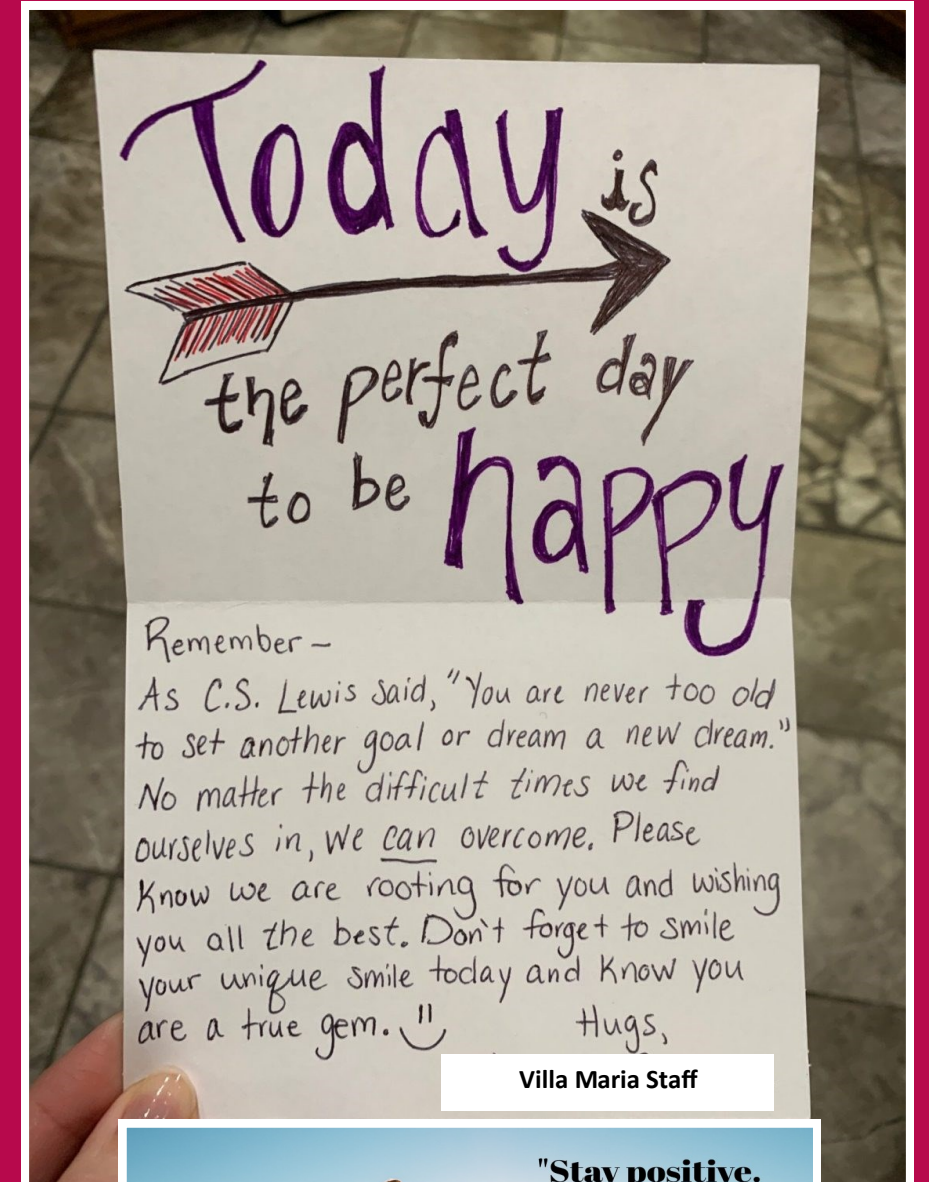 Today is
the perfect day
to be happy
Remember –
As C.S. Lewis said, "You are never too old
to set another goal or dream a new dream."
No matter the difficult times we find
ourselves in, we can overcome. Please
know we are rooting for you and wishing
you all the best. Don't forget to smile
your unique smile today and know you
are a true gem.
Hugs,
Villa Maria Staff
"Stay positive.